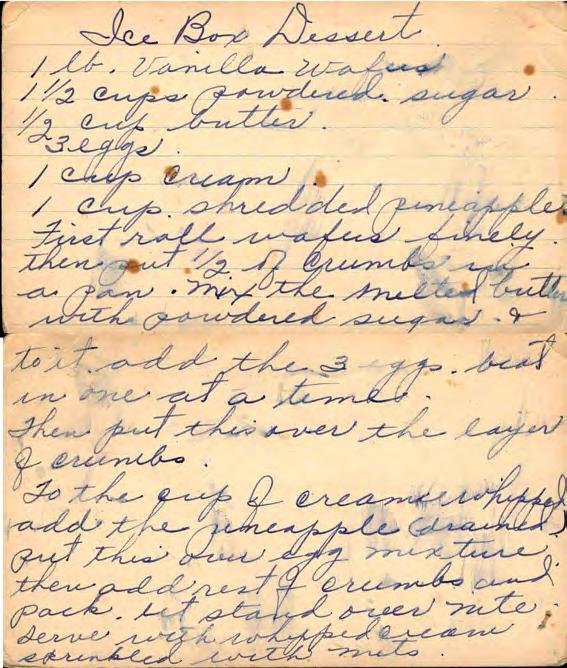 Ice Box Dessert
1 lb. Vanilla Wafers
1 1/2 cups powdered sugar.
1/2 cup butter.
3 eggs.
1 cup cream.
1 cup shredded pineapple
First roll wafers finely.
then put 1/2 of crumbs in
a pan. Mix the melted butter
with powdered sugar. &
to it add the 3 eggs. beat
in one at a time.
Then put this over the layer
of crumbs.
To the cup of cream whipped
add the pineapple drained.
put this over egg mixture.
then add rest of crumbs and
pack. let stand over nite.
serve with whipped cream
sprinkled with nuts.